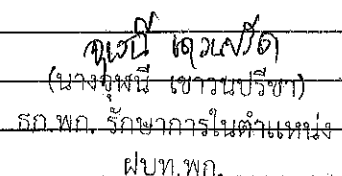 (นางจุฬนี เชาวนปรีชา)
ธก.พก. รักษาการในตำแหน่ง
ฝบท.พก.